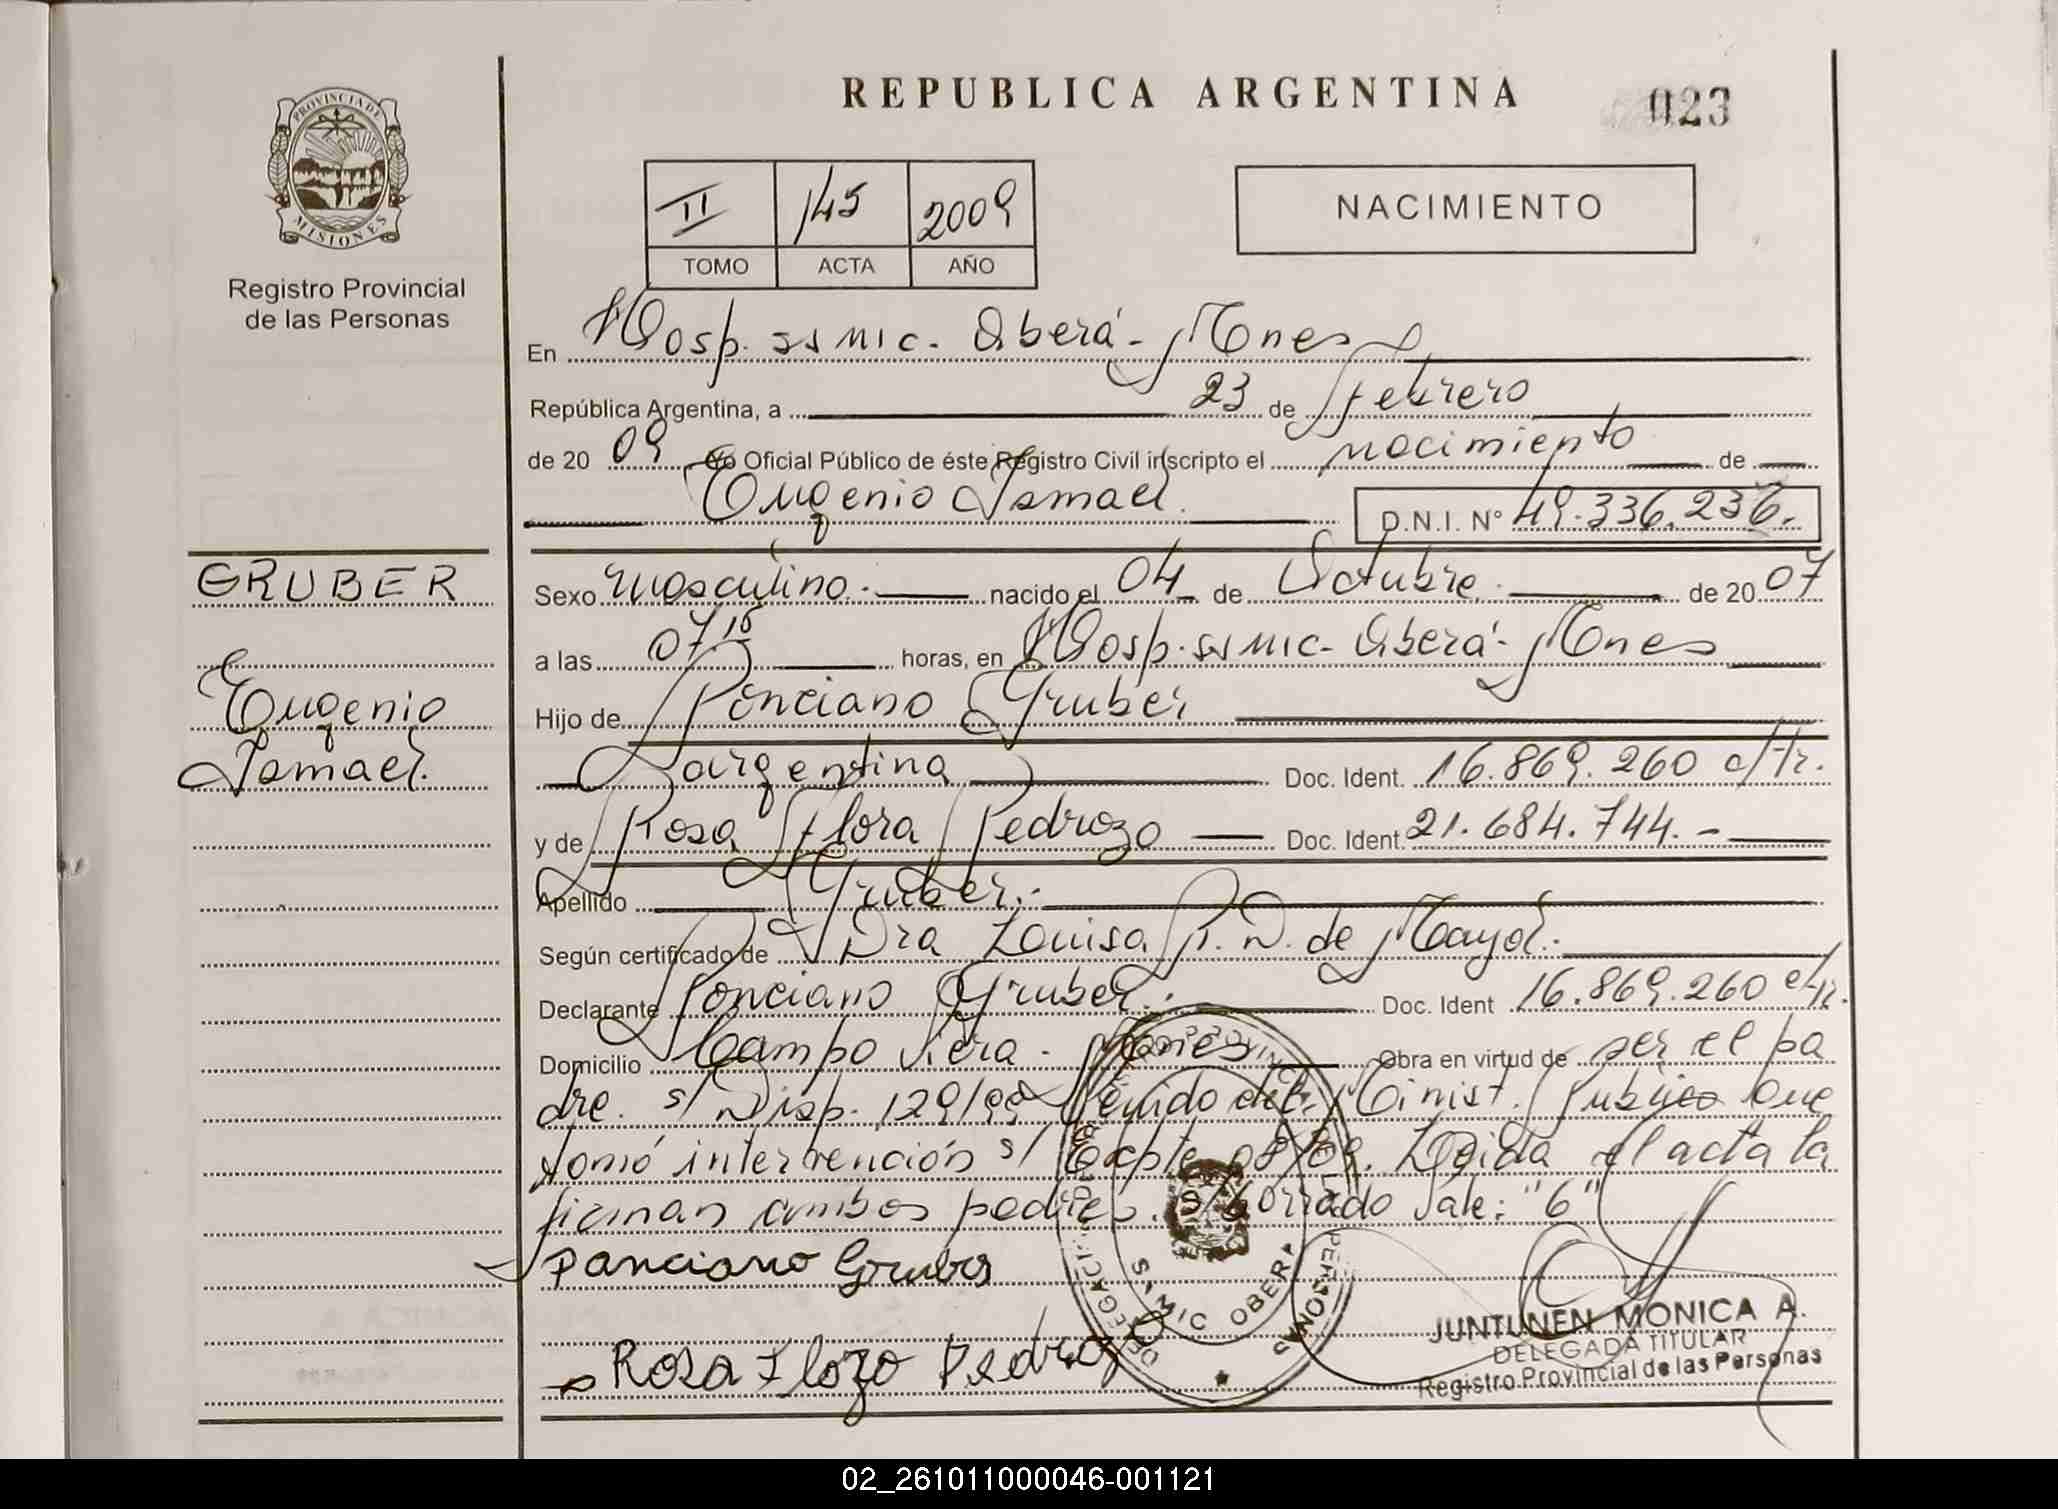 REPUBLICA ARGENTINA
023
PROVINCIA DE
MISIONES
Registro Provincial
de las Personas
II 145 2009
TOMO ACTA AÑO
NACIMIENTO
En Hosp. ss mic. Oberá - Mnes
República Argentina, a 23 de febrero
de 2009 Yo Oficial Público de éste Registro Civil inscripto el nacimiento de
Eugenio Ismael. D.N.I. N° 49.336.236.
GRUBER
Eugenio
Ismael.
Sexo masculino. nacido el 04 de Octubre. de 2007
a las 07,15 horas, en Hosp. ss mic. Oberá - Mnes
Hijo de Ponciano Gruber
argentina Doc. Ident. 16.869.260 c/tr.
y de Rosa Flora Pedrozo Doc. Ident. 21.684.744.-
Apellido Gruber.
Según certificado de Dra Luisa P. D. de Mayol.
Declarante Ponciano Gruber. Doc. Ident 16.869.260 c/tr.
Domicilio Campo Viera - Mnes Obra en virtud de ser el pa
dre. s/ Disp. 129/99 del Minist. Publico que
tomó intervención s/ Expte 08/09. Leída el acta la
firman ambos padres. s/borrado Vale: "6"
Panciano Gruber
Rosa Floza Pedrozo
DELEGACION
S. MIC OBERA
PERSONAS
JUNTUNEN MONICA A.
DELEGADA TITULAR
Registro Provincial de las Personas
02_261011000046-001121